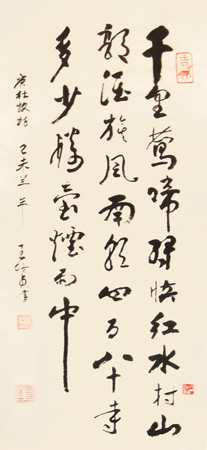 千里莺啼绿映红水村山
郭酒旗风南朝四百八十寺
多少楼台烟雨中
唐杜牧诗 乙未兰年